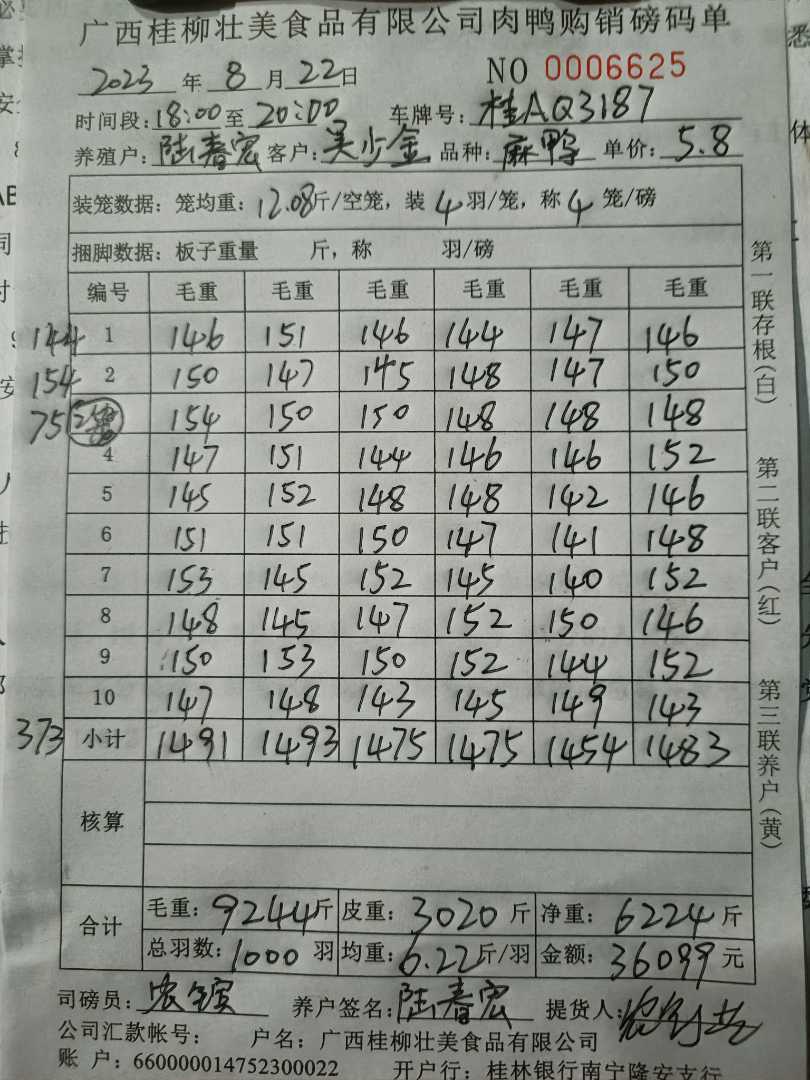 广西桂柳壮美食品有限公司肉鸭购销磅码单
2023 年 8 月 22 日 NO 0006625
时间段: 18:00 至 20:00 车牌号: 桂AQ3187
养殖户: 陆春宏 客户: 吴少金 品种: 麻鸭 单价: 5.8
装笼数据: 笼均重: 12.08 斤/空笼, 装 4 羽/笼, 称 4 笼/磅
捆脚数据: 板子重量 斤, 称 羽/磅
编号 毛重 毛重 毛重 毛重 毛重 毛重
144 1 146 151 146 144 147 146
154 2 150 147 145 148 147 150
75 154 150 150 148 148 148
4 147 151 144 146 146 152
5 145 152 148 148 142 146
6 151 151 150 147 141 148
7 153 145 152 145 140 152
8 148 145 147 152 150 146
9 150 153 150 152 144 152
10 147 148 143 145 149 143
373 小计 1491 1493 1475 1475 1454 1483
核算
合计 毛重: 9244 斤 皮重: 3020 斤 净重: 6224 斤
总羽数: 1000 羽 均重: 6.22 斤/羽 金额: 36099 元
司磅员: 养户签名: 陆春宏 提货人:
公司汇款帐号: 户名: 广西桂柳壮美食品有限公司
账 户: 660000014752300022 开户行: 桂林银行南宁隆安支行
第一联存根(白)
第二联客户(红)
第三联养户(黄)